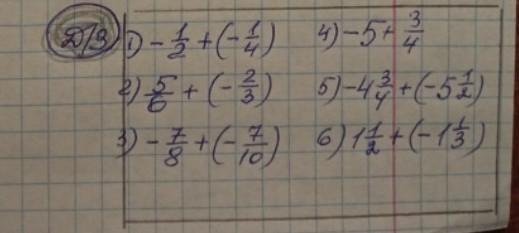 Д/З 1) -1/2 + (-1/4) 4) -5 + 3/4
2) 5/6 + (-2/3) 5) -4 3/4 + (-5 1/2)
3) -7/8 + (-7/10) 6) 1 1/2 + (-1 1/3)